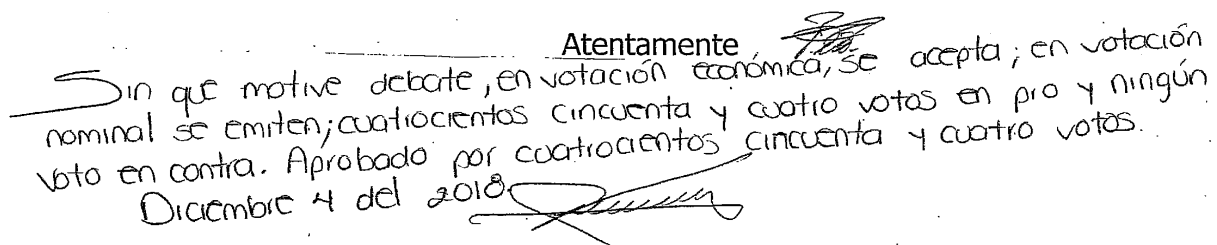 Atentamente
Sin que motive debate, en votación económica, se acepta; en votación
nominal se emiten; cuatrocientos cincuenta y cuatro votos en pro y ningún
voto en contra. Aprobado por cuatrocientos cincuenta y cuatro votos.
Diciembre 4 del 2018